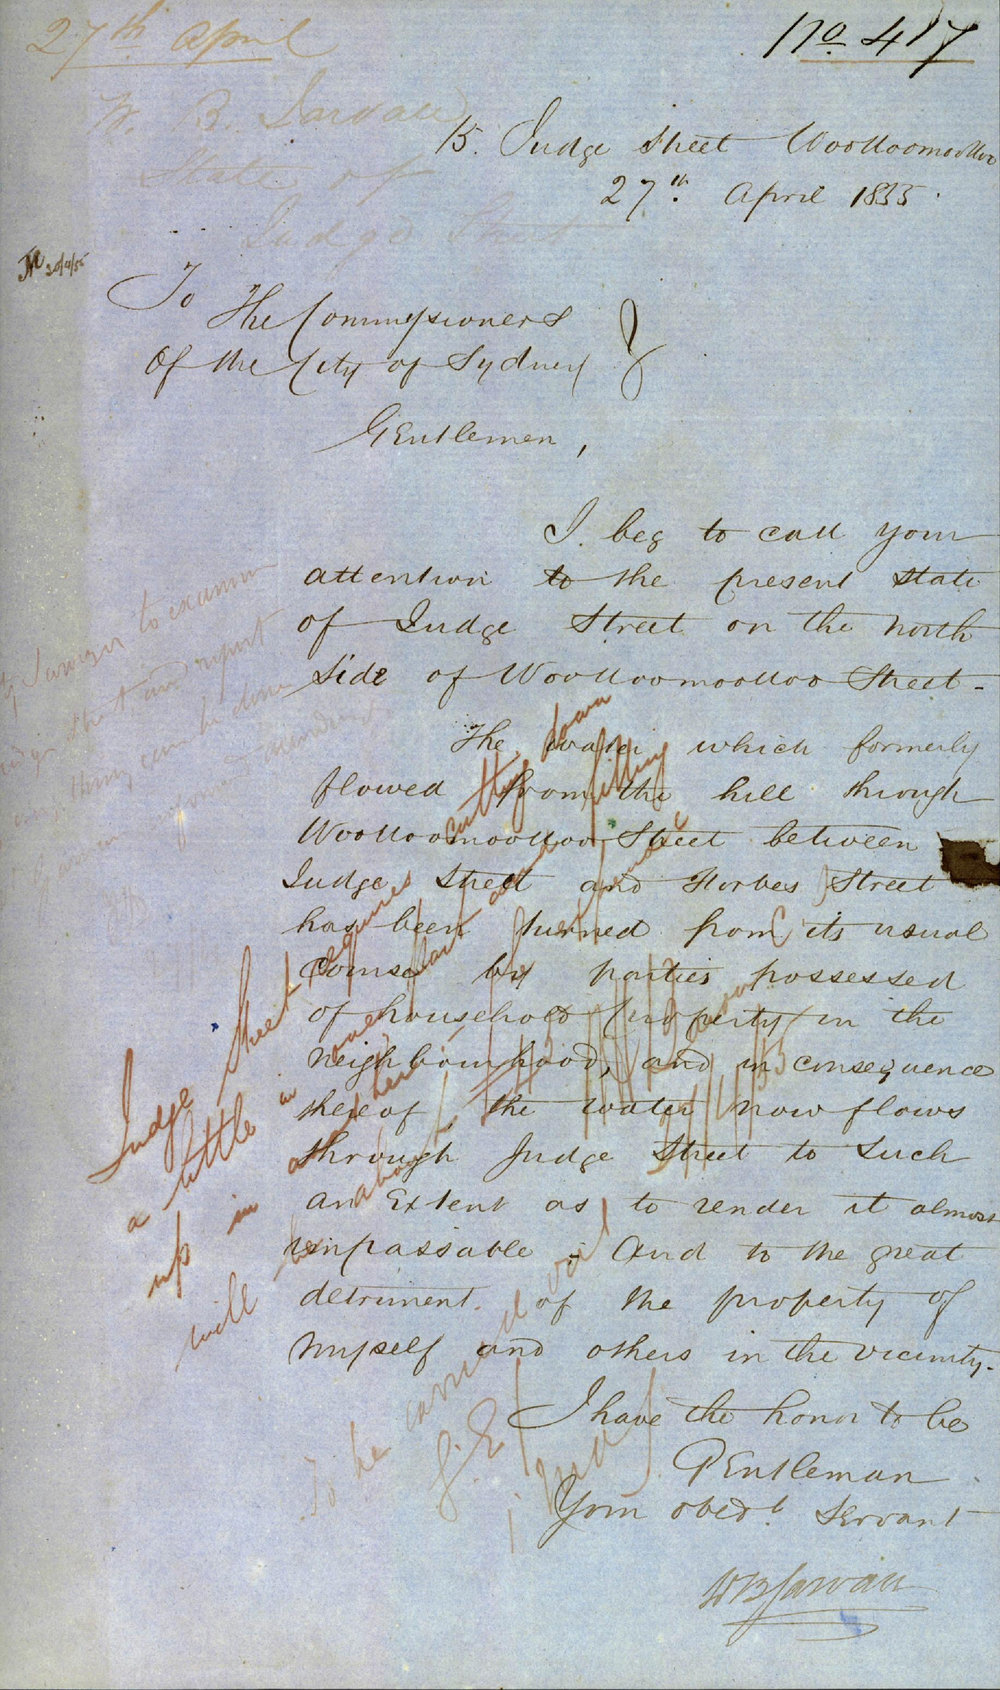 27th April
No. 417
W. B.
State of
Judge Street
15. Judge Street Woolloomoolloo
27th. April 1855.
To
The Commissioners
Of the City of Sydney
Gentlemen,
I beg to call your
attention to the present state
of Judge Street on the north
side of Woolloomoolloo Street.
The water which formerly
flowed from the hill through
Woolloomoolloo Street between
Judge Street and Forbes Street
has been turned from its usual
course by parties possessed
of household property in the
neighbourhood, and in consequence
thereof the water now flows
through Judge Street to such
an Extent as to render it almost
impassable; And to the great
detriment. of the property of
myself and others in the vicinity.
I have the honor to be
Gentleman
Your obedt. Servant
W B
to examine
Judge Street and report
anything can be done
Judge Street requires cutting down
a little in one part and filling
up in another,
will be about
To be carried out
G. E.
1 May